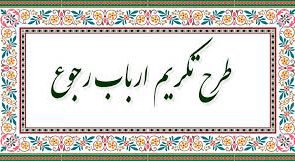 طرح تکریم ارباب رجوع